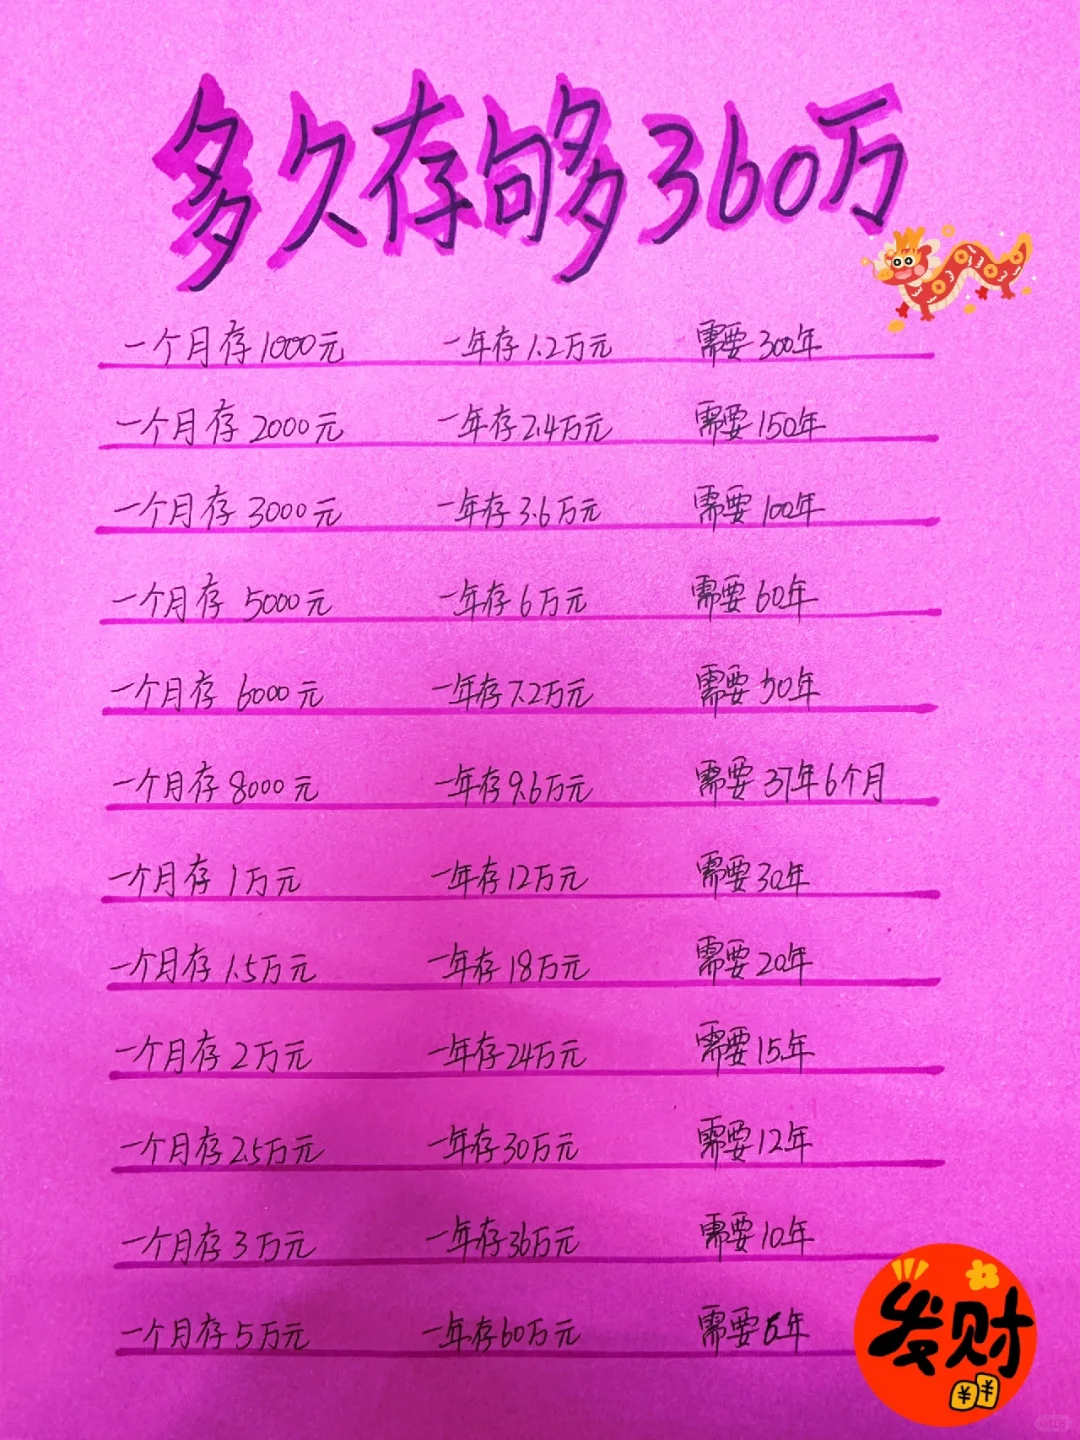 多久存够360万
一个月存1000元 一年存1.2万元 需要300年
一个月存2000元 一年存2.4万元 需要150年
一个月存3000元 一年存3.6万元 需要100年
一个月存5000元 一年存6万元 需要60年
一个月存6000元 一年存7.2万元 需要50年
一个月存8000元 一年存9.6万元 需要37年6个月
一个月存1万元 一年存12万元 需要30年
一个月存1.5万元 一年存18万元 需要20年
一个月存2万元 一年存24万元 需要15年
一个月存2.5万元 一年存30万元 需要12年
一个月存3万元 一年存36万元 需要10年
一个月存5万元 一年存60万元 需要6年
发财
¥ ¥